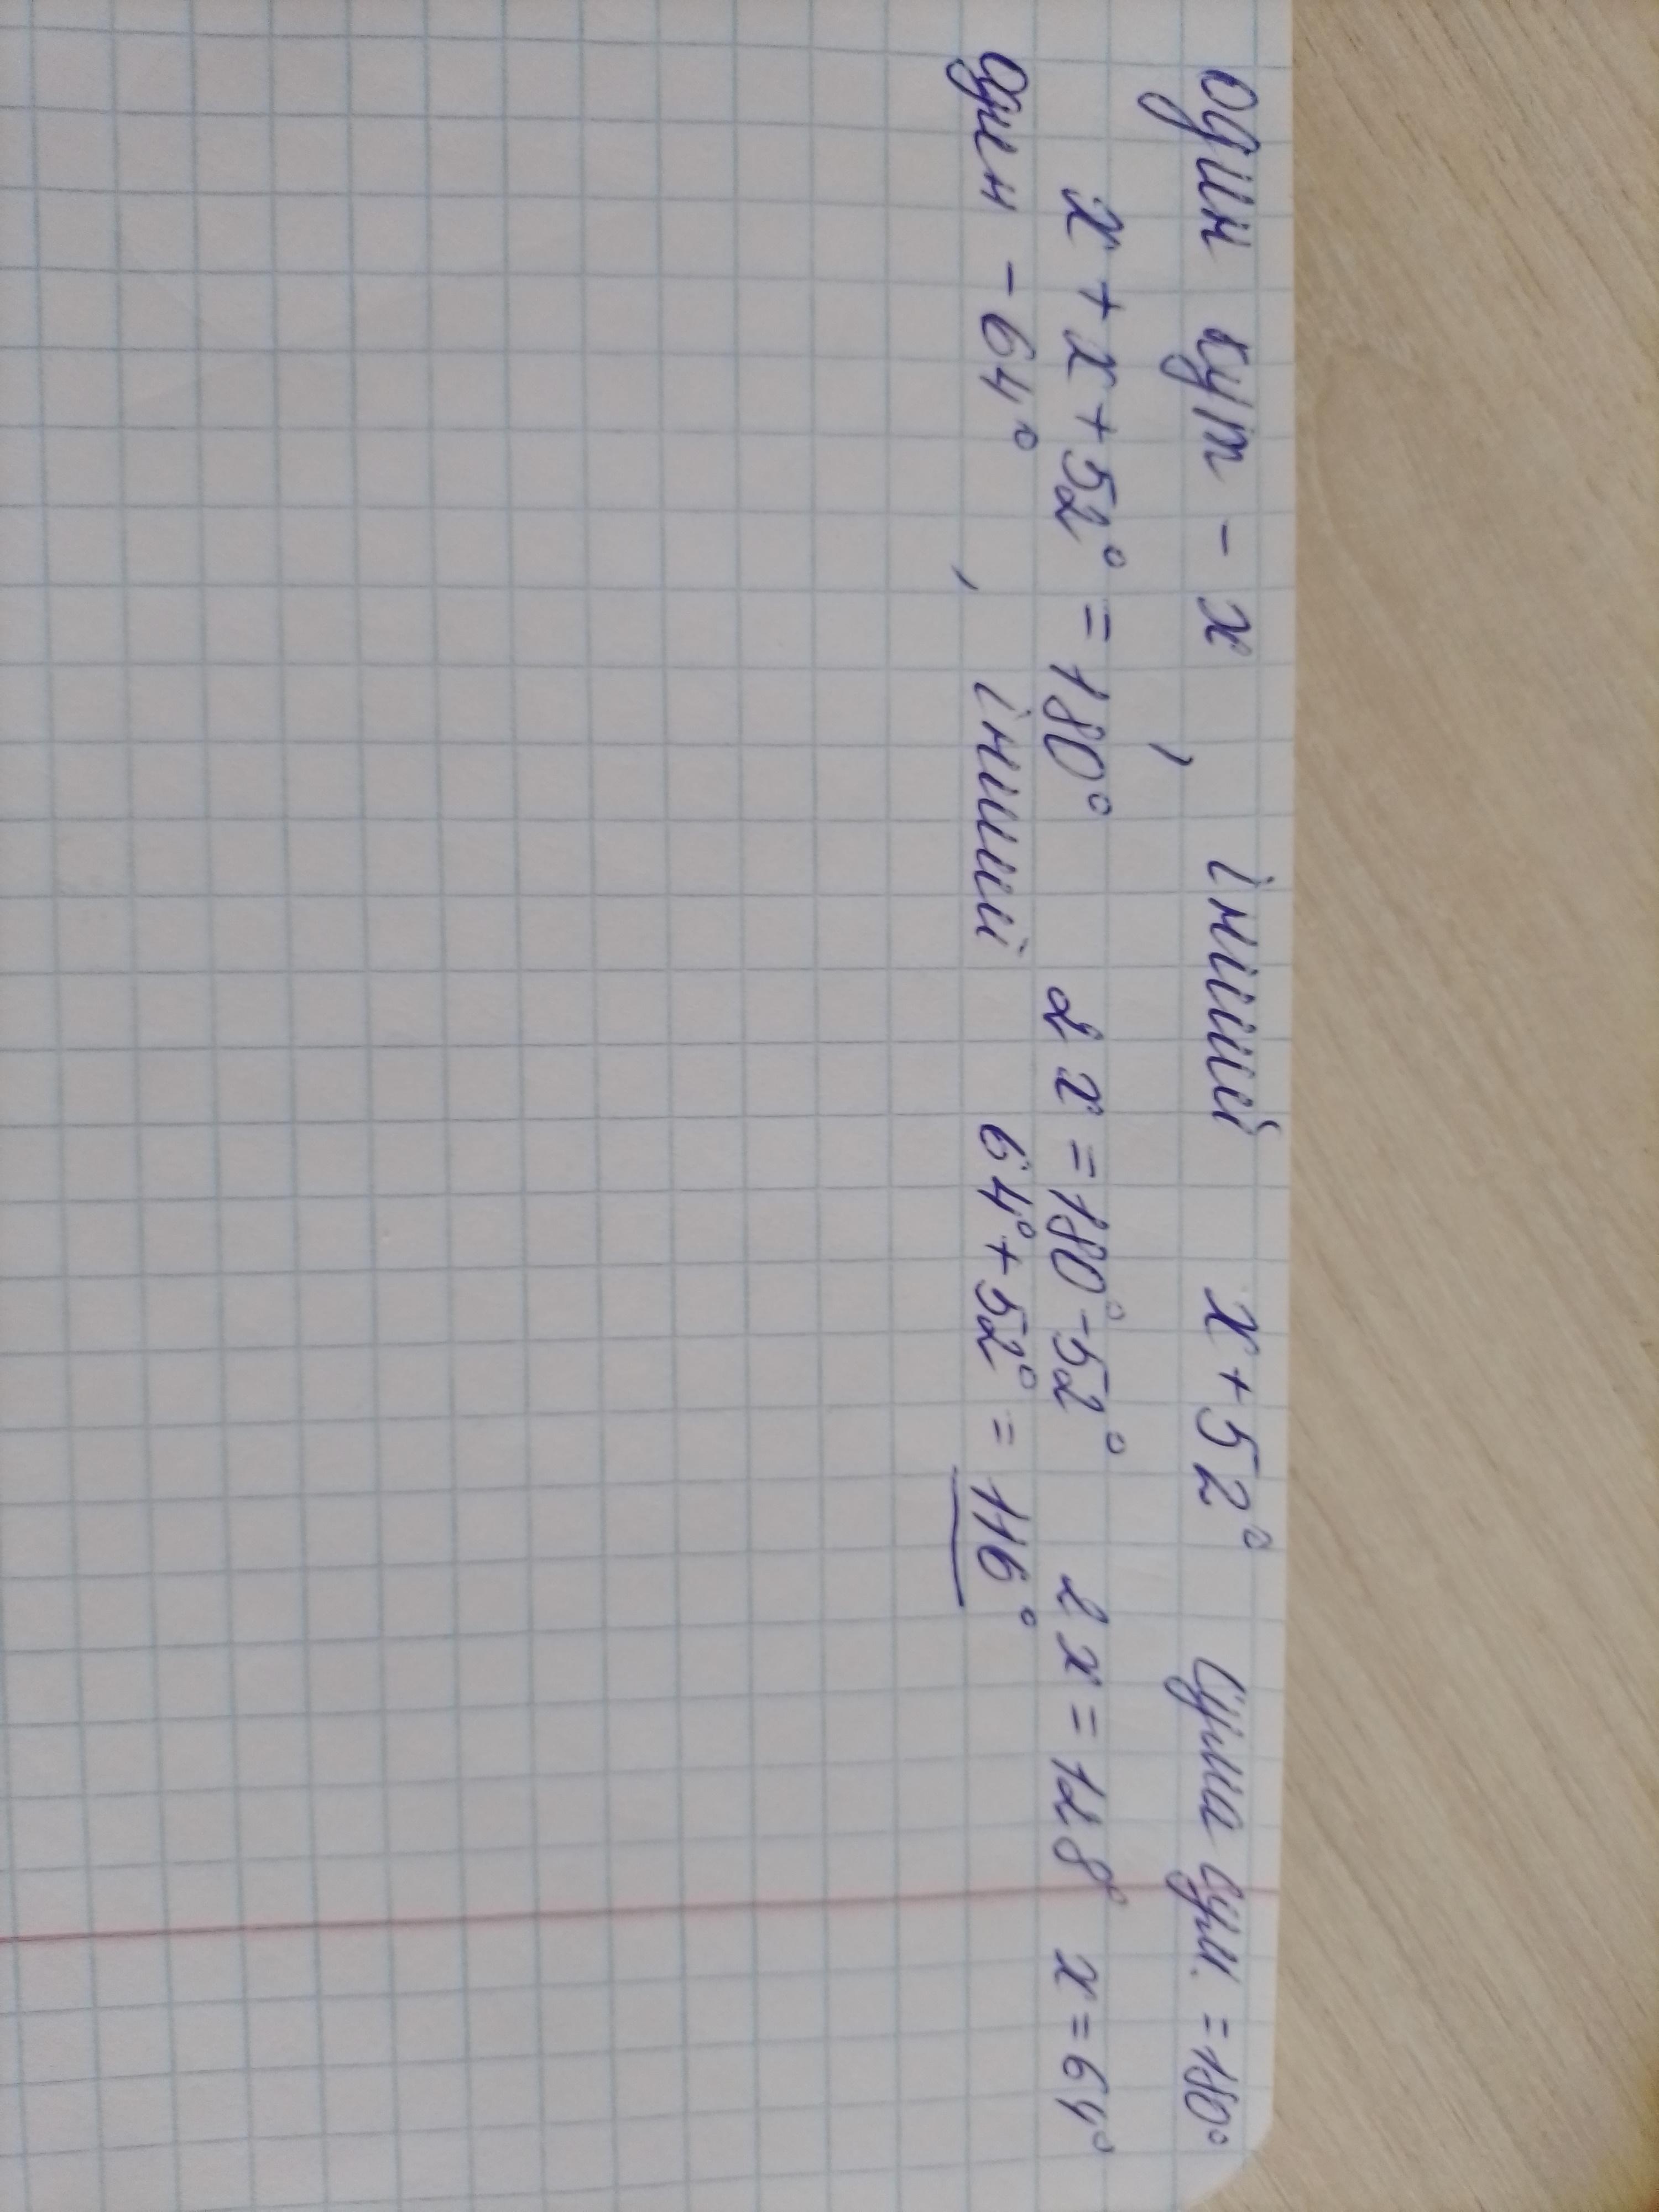 один кут - x , інший x + 52° Сума сум. = 180°
x + x + 52° = 180° 2x = 180° - 52° 2x = 128° x = 64°
один - 64° , інший 64° + 52° = 116°